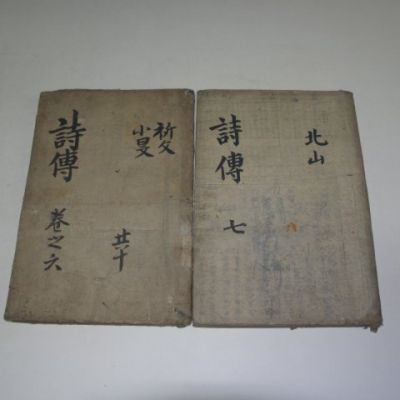 詩傳
卷之六
祈父
小旻
共十
詩傳
七
北山